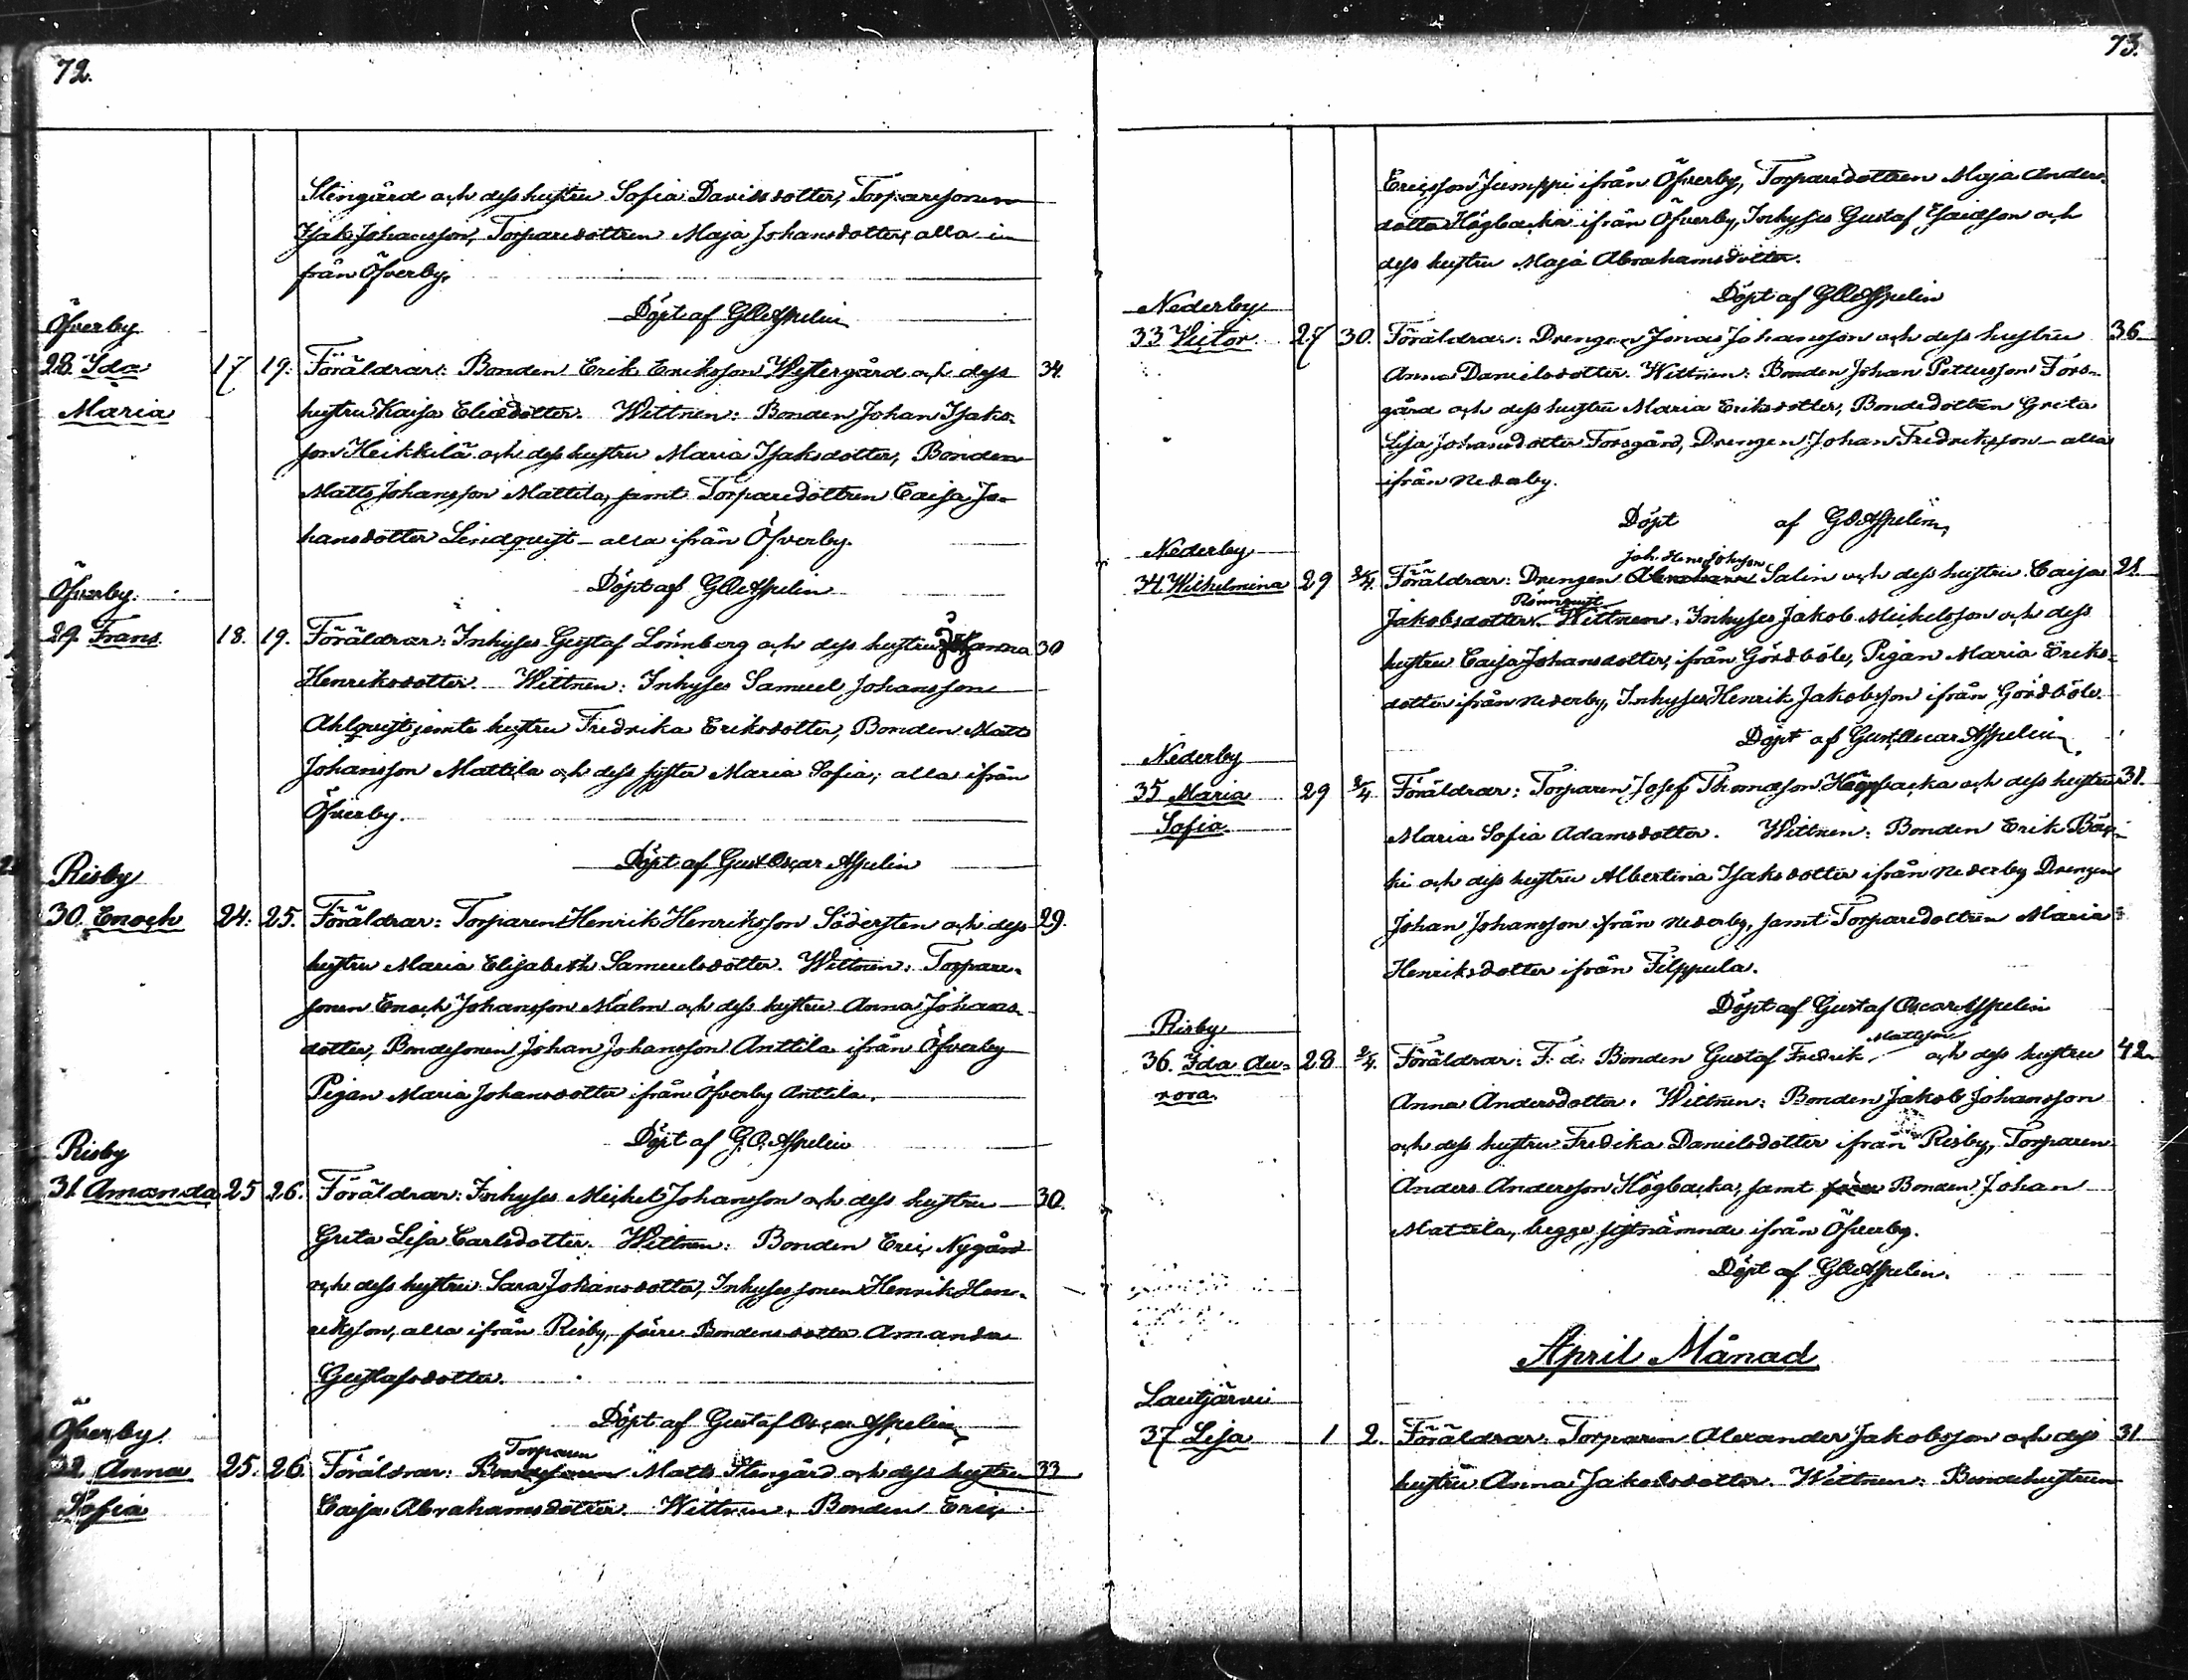 72.
Stengård och dess hustru Sofia Davidsdotter, Torparesonen
Isak Johansson, Torparedottren Maja Johansdotter, alla i
från Öfverby.
Döpt af GOAspelin
Öfverby
28. Ida 17 19. Föräldrar: Bonden Erik Eriksson Westergård och dess 34.
Maria hustru Kaisa Eliedotter. Wittnen: Bonden Johan Isaks-
son Heikkilä och dess hustru Maria Isaksdotter, Bonden
Matts Johansson Mattila, samt Torparedottren Caisa Jo-
hansdotter Lindquist – alla ifrån Öfverby.
Döpt af GOAspelin
Öfverby.
29. Frans. 18. 19. Föräldrar: Inhyses Gustaf Lönnberg och dess hustru Johanna 30
Henriksdotter. Wittnen: Inhyses Samuel Johansson
Ahlquist jemte hustru Fredrika Eriksdotter, Bonden Matts
Johansson Mattila och dess syster Maria Sofia, alla ifrån
Öfverby.
Döpt af Gust Oscar Aspelin
Risby
30. Enoch 24. 25. Föräldrar: Torparen Henrik Henriksson Södersten och dess 29.
hustru Maria Elisabeth Samuelsdotter. Wittnen: Torpare-
sonen Enoch Johansson Malm och dess hustru Anna Johans-
dotter, Bondesonen Johan Johansson Anttila ifrån Öfverby
Pigan Maria Johansdotter ifrån Öfverby Anttila.
Döpt af G.O. Aspelin
Risby
31. Amanda 25 26. Föräldrar: Inhyses Michel Johansson och dess hustru 30.
Greta Lisa Carlsdotter. Wittnen: Bonden Eric Nygård
och dess hustru Sara Johansdotter, Inhyses sonen Henrik Hen-
riksson, alla ifrån Risby, förre Bondens dotter Amanda
Gustafsdotter.
Döpt af Gustaf Oscar Aspelin
Öfverby.
Torparen
32 Anna 25. 26. Föräldrar: Bondesonen Matts Stengård och dess hustru 33
Sofia Caisa Abrahamsdotter. Wittnen: Bonden Eric
73.
Ericsson Jumppi ifrån Öfverby, Torparedottren Maja Anders-
dotter Högbacka ifrån Öfverby, Inhyses Gustaf Esaiasson och
dess hustru Maja Abrahamsdotter.
Döpt af GOAspelin
Nederby
33 Victor. 27 30. Föräldrar: Drengen Jonas Johansson och dess hustru 36
Anna Danielsdotter. Wittnen: Bonden Johan Pettersson Fors-
gård och dess hustru Maria Eriksdotter, Bondedottren Greta
Lisa Johansdotter Forsgård, Drengen Johan Fredriksson – alla
ifrån Nederby.
Döpt af GOAspelin
Nederby
Joh. Henr. Johnson
34 Wilhelmina 29 2/4 Föräldrar: Drengen Abraham Salin och dess hustru Caisa 21.
Rönnquist
Jakobsdotter. Wittnen. Inhyses Jakob Michelsson och dess
hustru Caisa Johansdotter, ifrån Gördböle, Pigan Maria Eriks-
dotter ifrån Nederby, Inhyses Henrik Jakobsson ifrån Gördböle.
Döpt af Gust. Oscar Aspelin
Nederby
35 Maria 29 2/4 Föräldrar: Torparen Josef Thomasson Högbacka och dess hustru 31.
Sofia Maria Sofia Adamsdotter. Wittnen: Bonden Erik
ki och dess hustru Albertina Isaksdotter ifrån Nederby Drengen
Johan Johansson ifrån Nederby, samt Torparedottren Maria
Henriksdotter ifrån Filppula.
Döpt af Gustaf Oscar Aspelin
Risby
Mattsson
36. Ida Au- 28 2/4. Föräldrar: F. d. Bonden Gustaf Fredrik och dess hustru 42
rora. Anna Andersdotter. Wittnen: Bonden Jakob Johansson
och dess hustru Fredika Danielsdotter ifrån Risby, Torparen
Anders Andersson Högbacka, samt förre Bonden Johan
Mattila, begge sistnämnde ifrån Öfverby.
Döpt af GOAspelin.
April Månad
Lautjärvi
37 Lisa 1 2. Föräldrar: Torparen Alexander Jakobsson och dess 31
hustru Anna Jakobsdotter. Wittnen: Bondehustrun